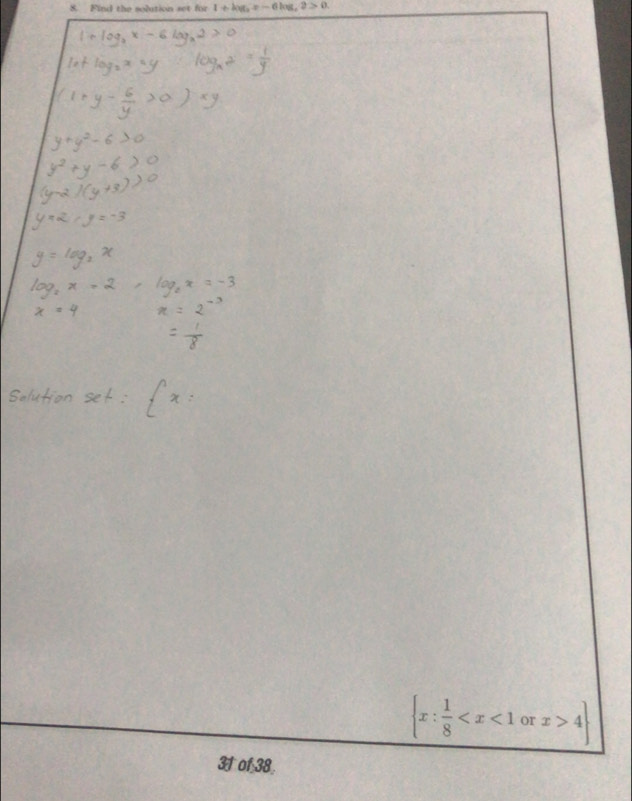 8. Find the solution set for 1 + log₂ x − 6 log ₓ 2 > 0.
1 + log₂ x − 6 logₓ 2 > 0
let log₂ x = y logₓ 2 = 1/y
( 1 + y − 6/y > 0 ) × y
y + y² − 6 > 0
y² + y − 6 > 0
(y−2)(y+3) > 0
y = 2 , y = −3
y = log₂ x
log₂ x = 2 , log₂ x = −3
x = 4 x = 2⁻³
= 1/8
Solution set : { x :
{x : 1/8 < x < 1 or x > 4}
31 of 38